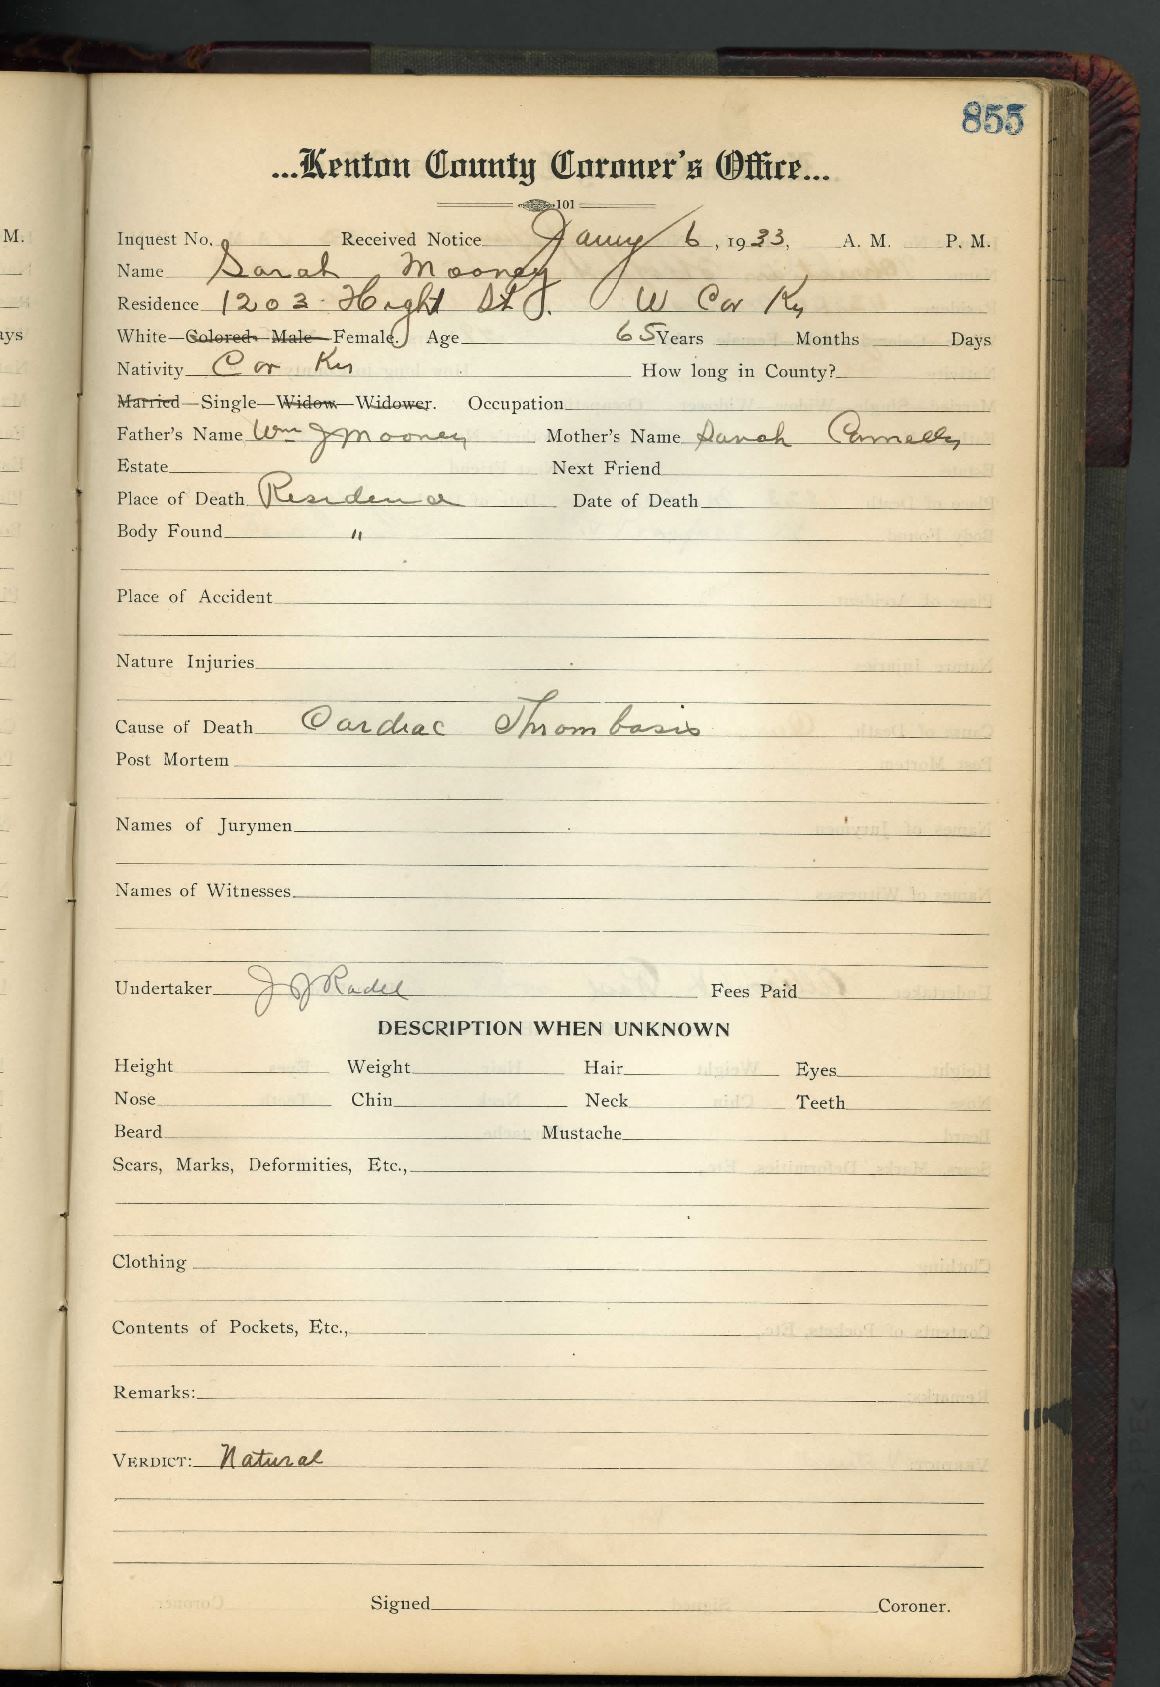 855
...Kenton County Coroner's Office...
101
M. Inquest No. Received Notice Jany 6, 1933, A. M. P. M.
Name Sarah Mooney
Residence 1203 Hight St. W Cov Ky
ays White—Colored—Male—Female. Age 65 Years Months Days
Nativity Cov Ky How long in County?
Married—Single—Widow—Widower. Occupation
Father's Name Wm J Mooney Mother's Name Sarah Connelly
Estate Next Friend
Place of Death Residence Date of Death
Body Found "
Place of Accident
Nature Injuries
Cause of Death Cardiac Thrombasis
Post Mortem
Names of Jurymen
Names of Witnesses
Undertaker J J Radel Fees Paid
DESCRIPTION WHEN UNKNOWN
Height Weight Hair Eyes
Nose Chin Neck Teeth
Beard Mustache
Scars, Marks, Deformities, Etc.,
Clothing
Contents of Pockets, Etc.,
Remarks:
VERDICT: Natural
Signed Coroner.